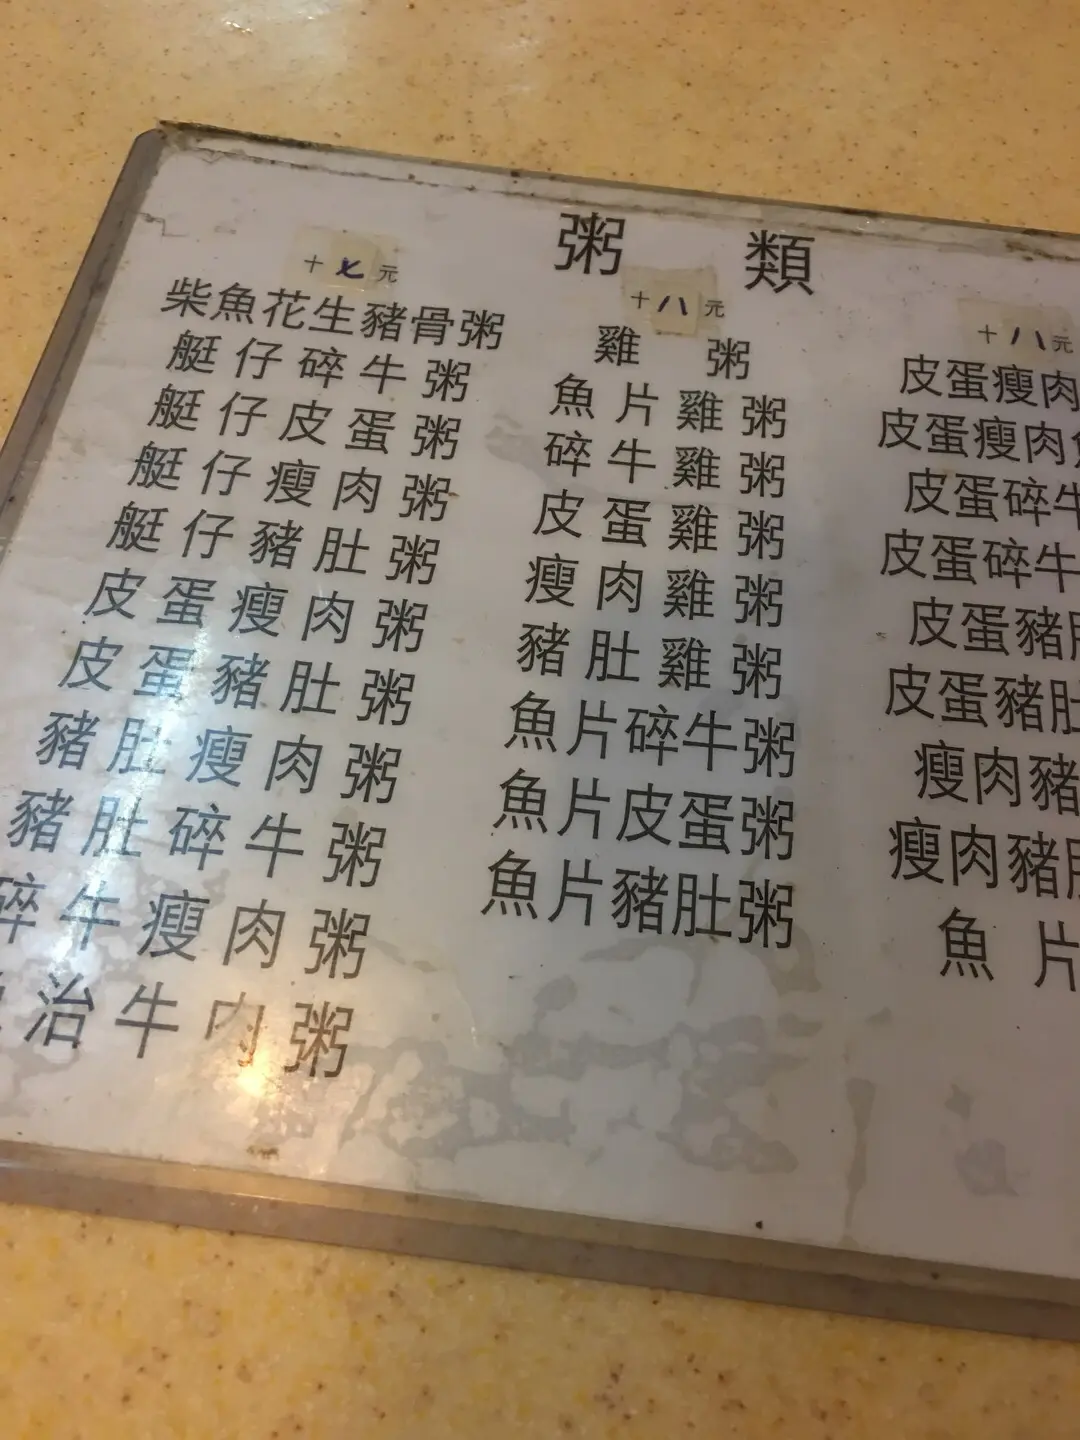 粥 類
十七元
柴魚花生豬骨粥
艇仔碎牛粥
艇仔皮蛋粥
艇仔瘦肉粥
艇仔豬肚粥
皮蛋瘦肉粥
皮蛋豬肚粥
豬肚瘦肉粥
豬肚碎牛粥
碎牛瘦肉粥
治牛肉粥
十八元
雞 粥
魚片雞粥
碎牛雞粥
皮蛋雞粥
瘦肉雞粥
豬肚雞粥
魚片碎牛粥
魚片皮蛋粥
魚片豬肚粥
十八元
皮蛋瘦肉
皮蛋瘦肉
皮蛋碎牛
皮蛋碎牛
皮蛋豬肚
皮蛋豬肚
瘦肉豬
瘦肉豬肚
魚片